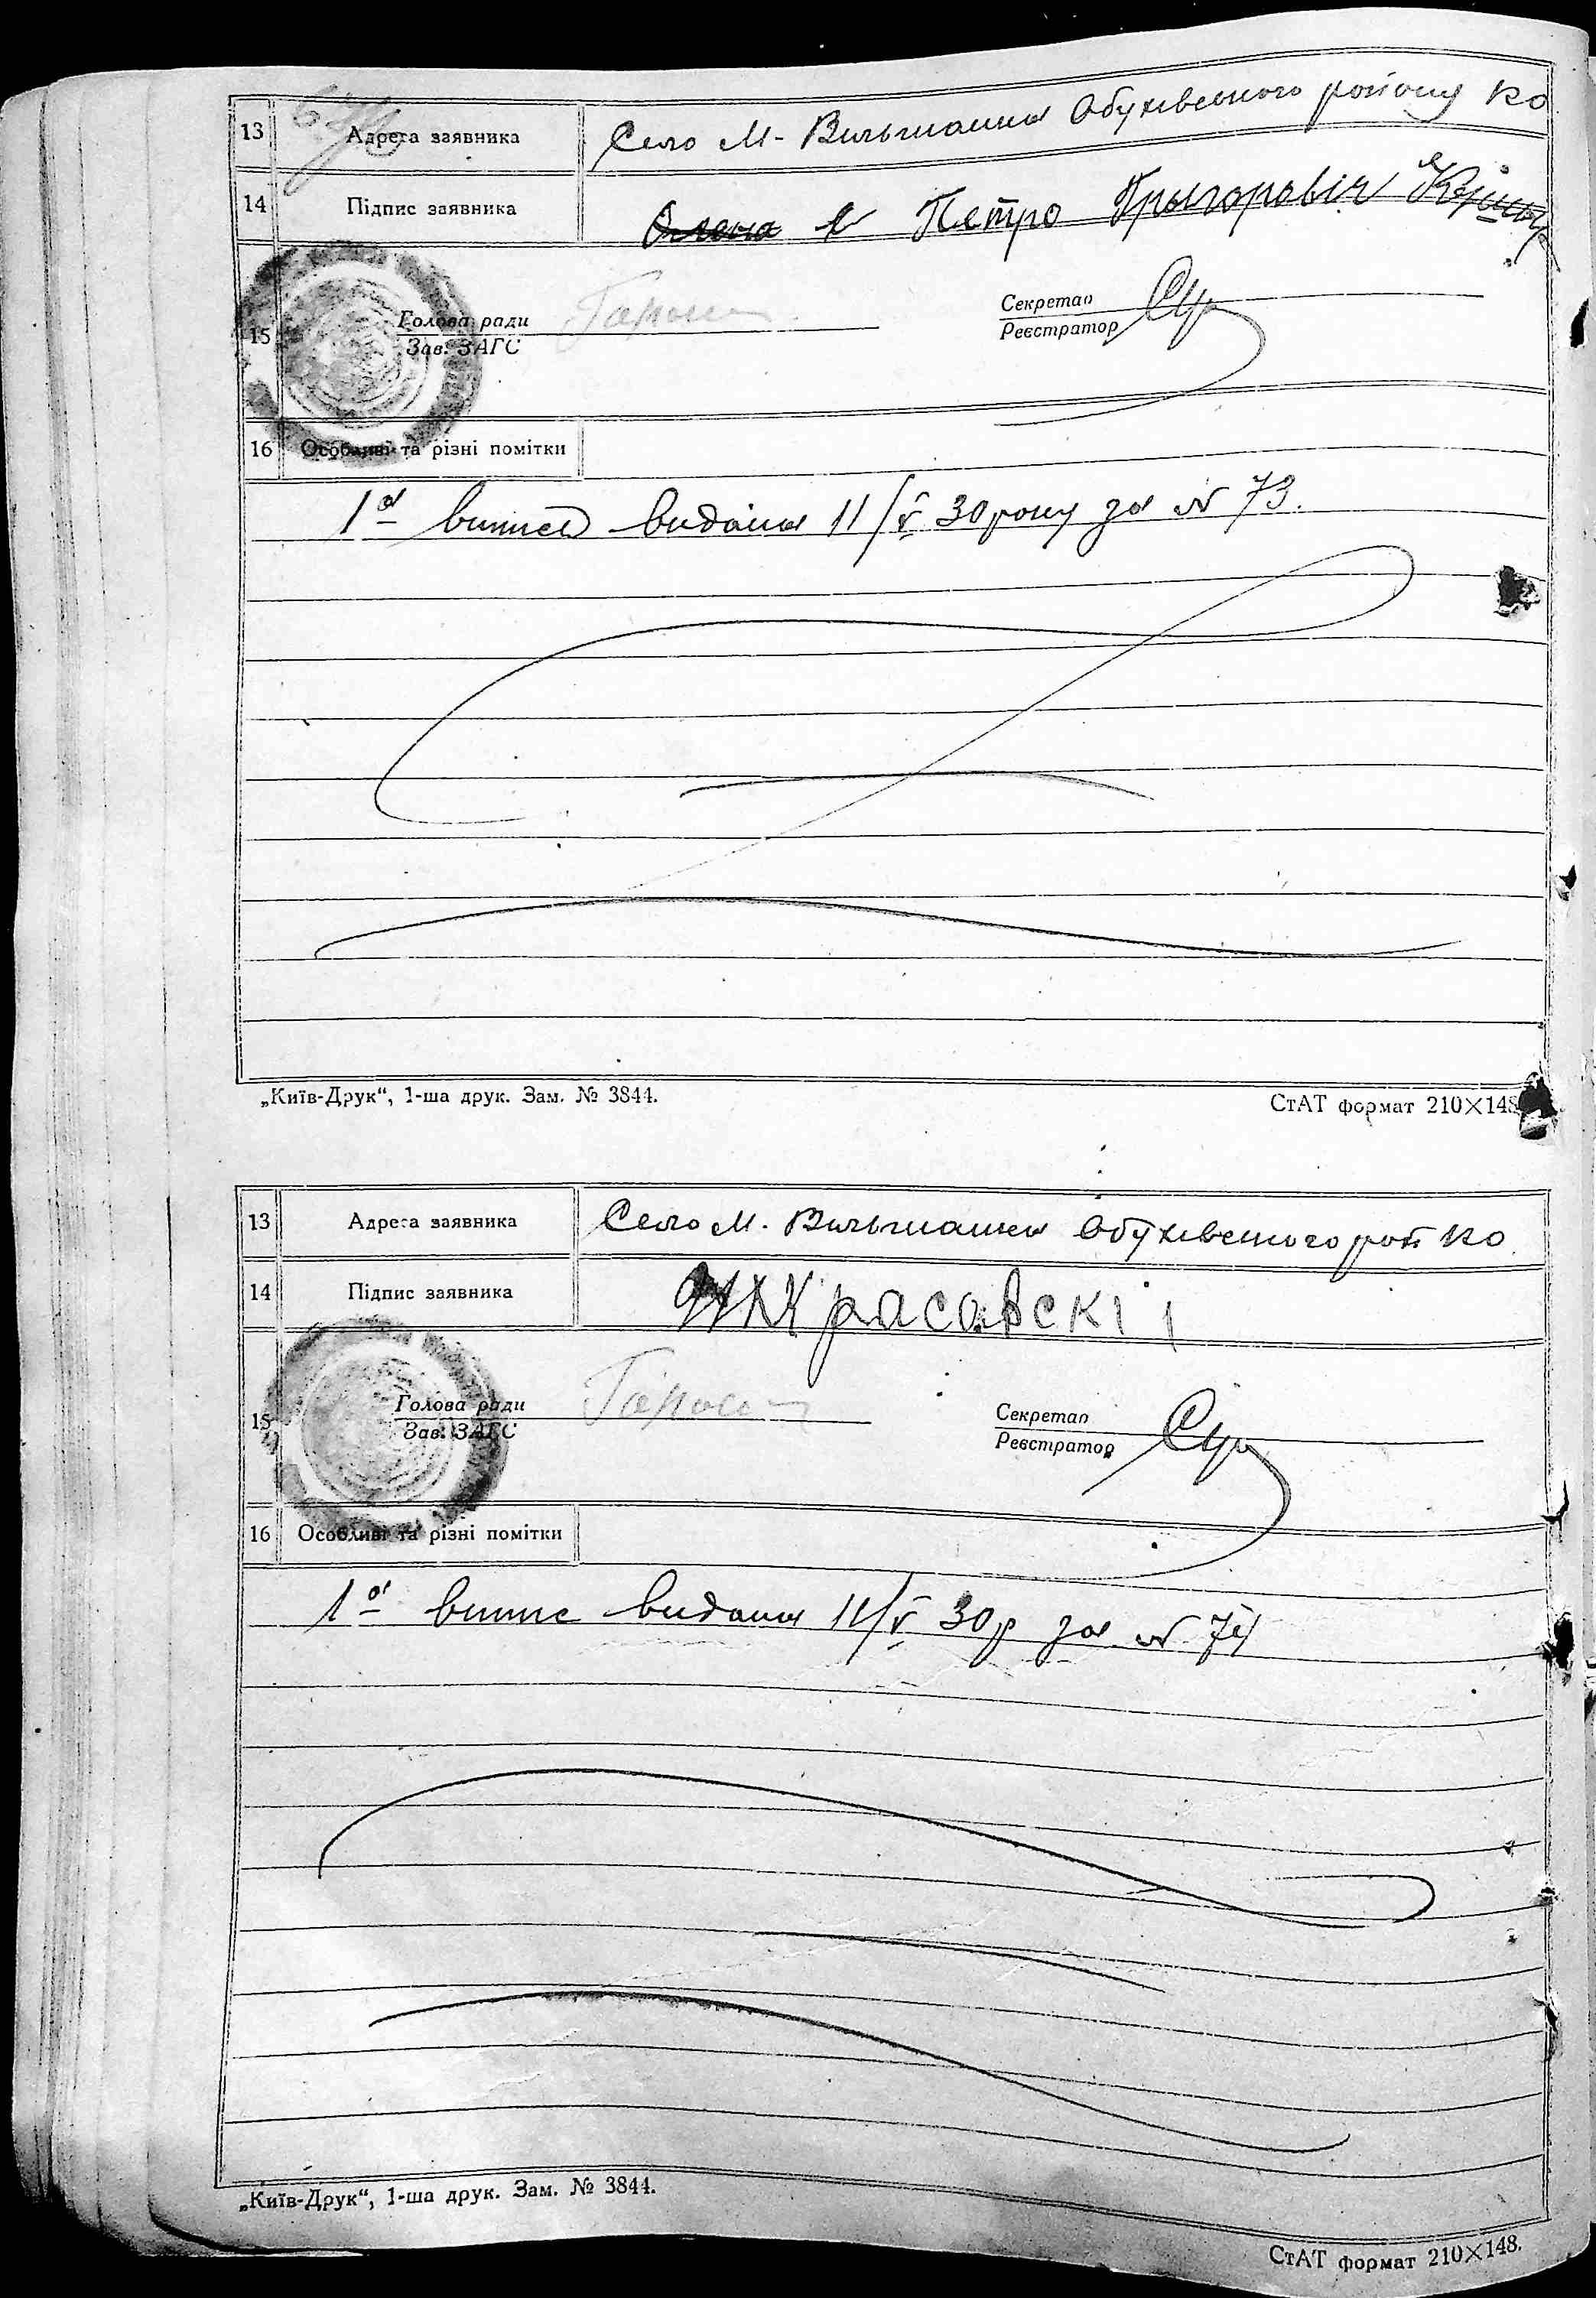 13 Адреса заявника Село М- Вильшанка Обухівського району КО
14 Підпис заявника Петро Грыгоровіч
15 Голова ради
Зав. ЗАГС
Секретар
Реєстратор
16 Особливі та різні помітки
1а випись видана 11/V 30 року за N 73.
„Київ-Друк“, 1-ша друк. Зам. № 3844.
СтАТ формат 210×148
13 Адреса заявника Село М. Вильшанка Обухівського рай КО
14 Підпис заявника Красавскі
15 Голова ради
Зав. ЗАГС
Секретар
Реєстратор
16 Особливі та різні помітки
1а випис видана 11/V 30 р за N 74
„Київ-Друк“, 1-ша друк. Зам. № 3844.
СтАТ формат 210×148.